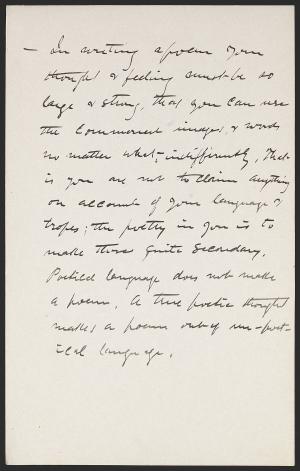 — In writing a poem your
thought & feeling must be so
large & strong, that you can use
the commonest images & words
no matter what, indifferently. That
is you are not to claim anything
on account of your language &
tropes; the poetry in you is to
make these quite secondary.
Poetical language does not make
a poem. A true poetic thought
makes a poem out of un-poet-
ical language.